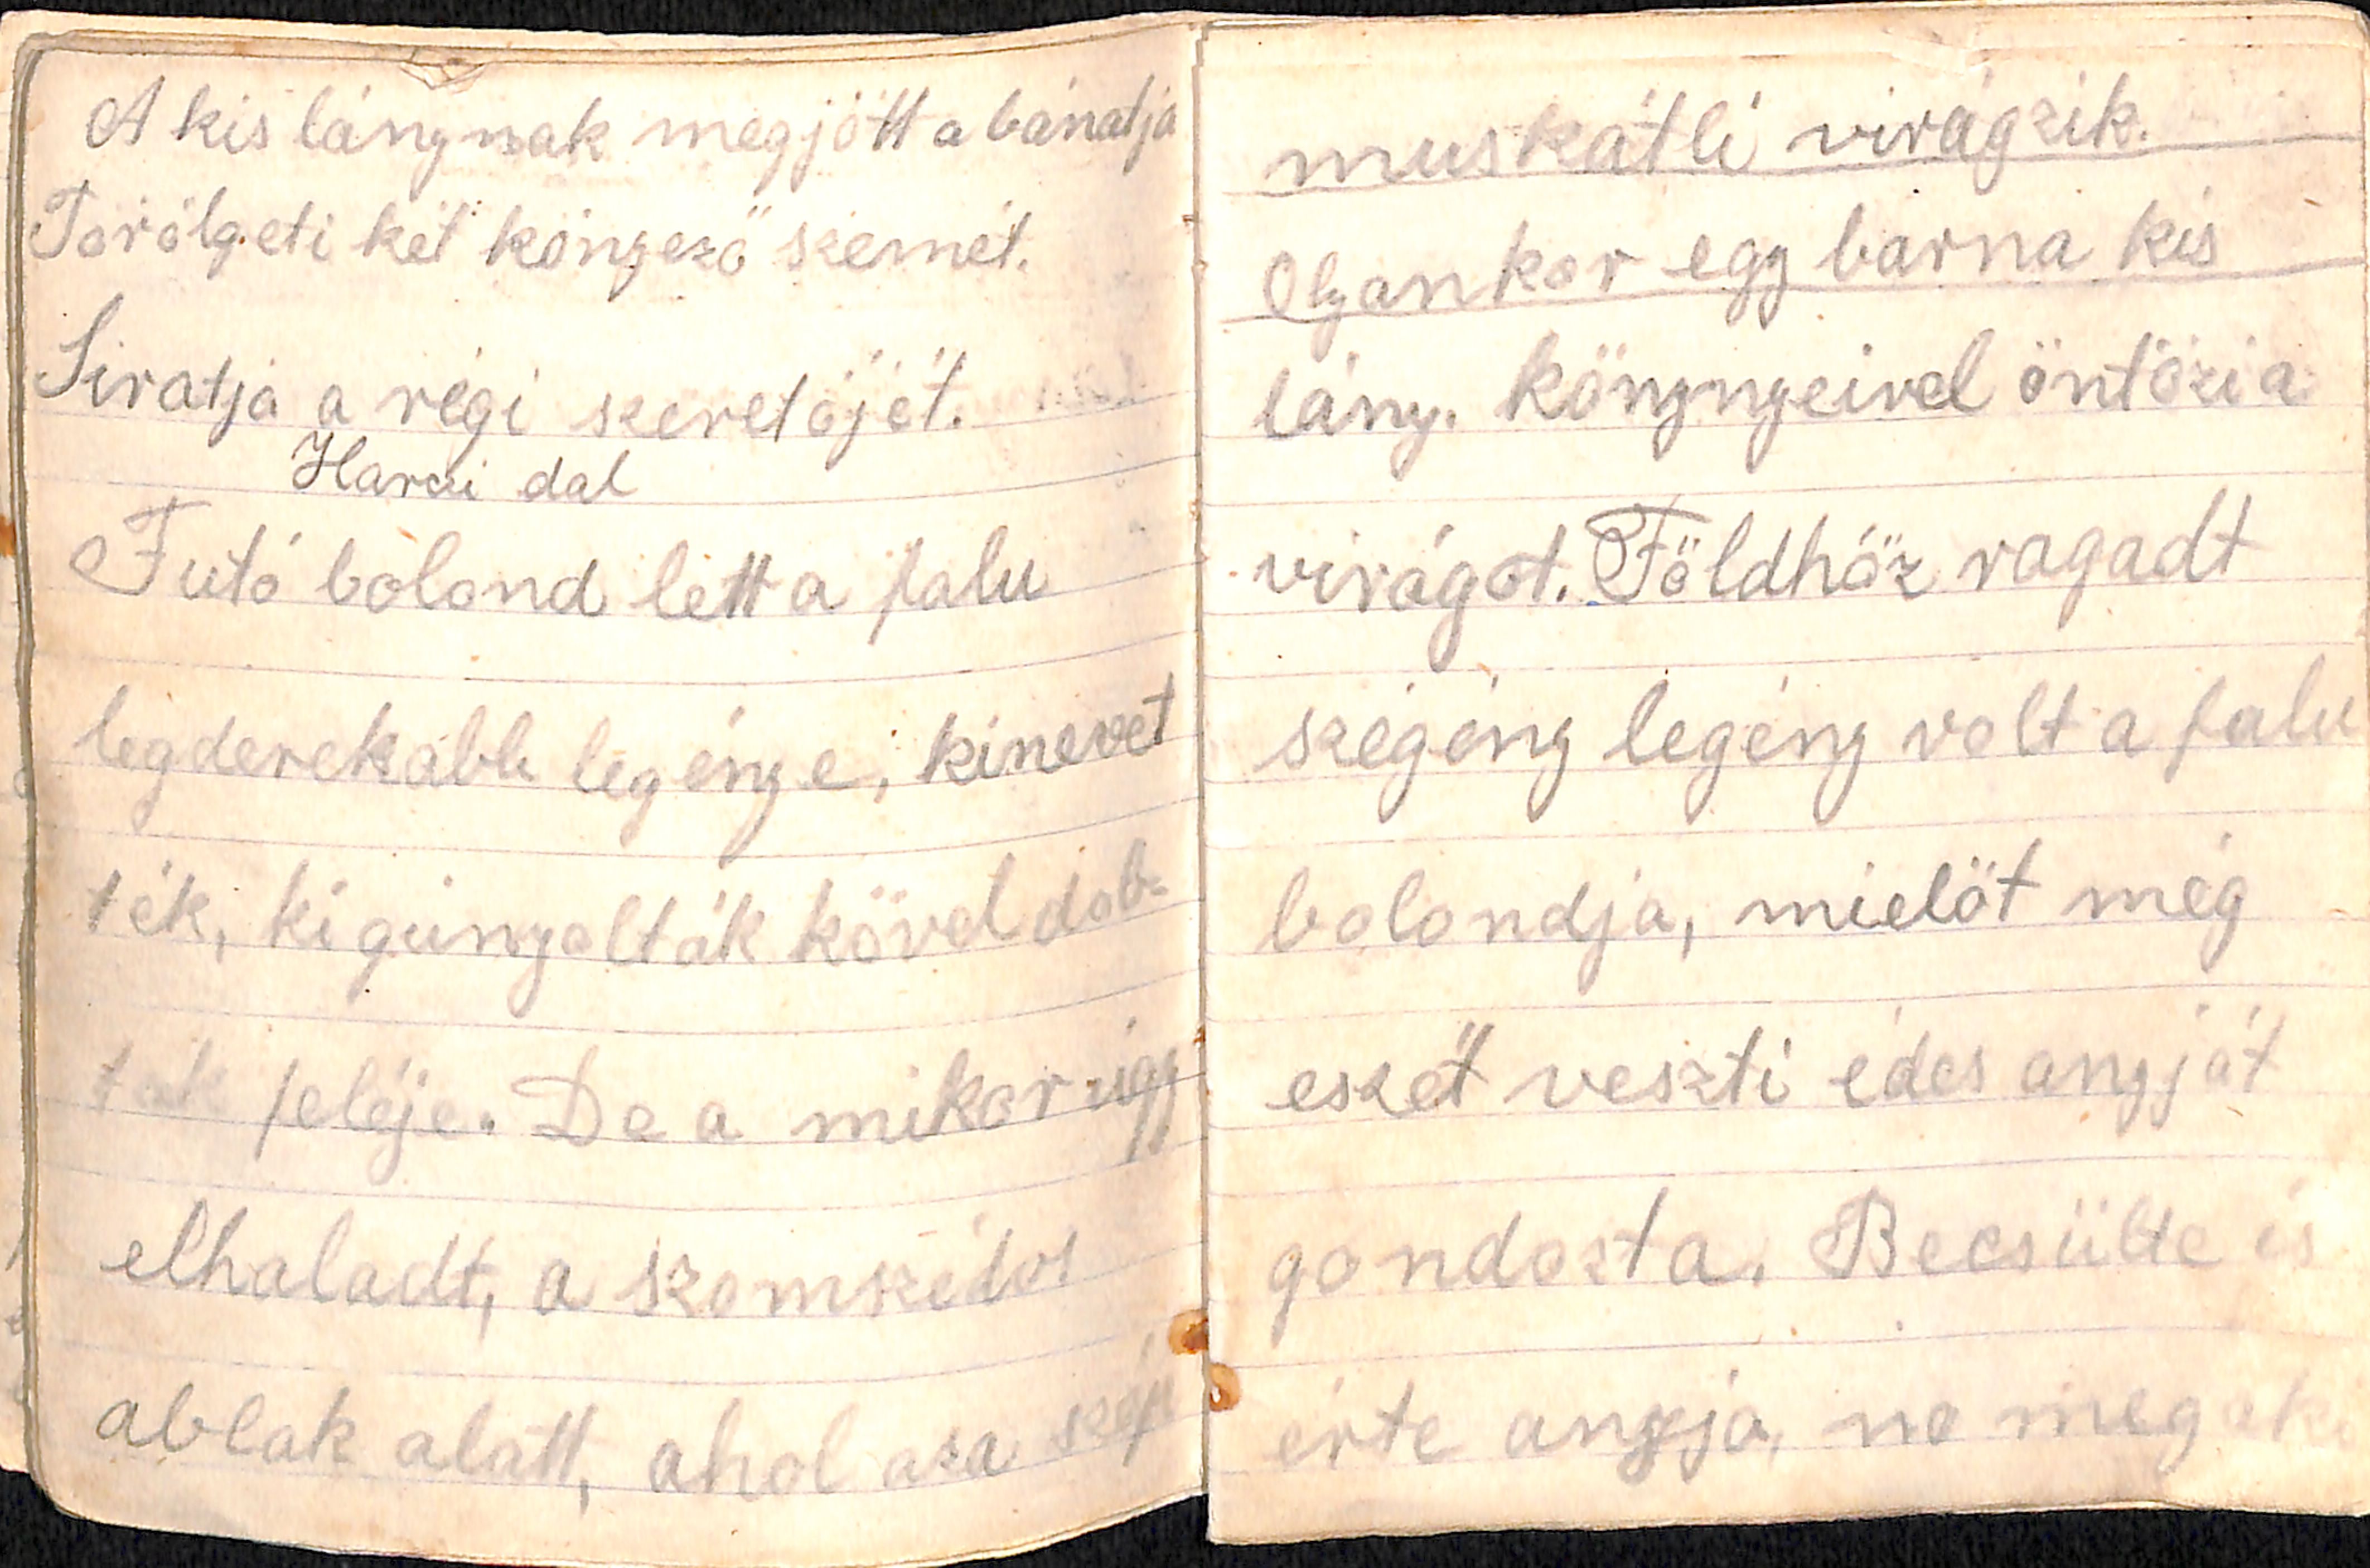 A kis lánynak megjött a bánatja
Törölgeti két könyező szemét.
Siratja a régi szeretőjét.
Harci dal
Futó bolond lett a falu
legderekabb legénye, kinevet
ték, kigúnyolták kövel dob-
ták feléje. De a mikor úgy
elhaladt, a szomszédos
ablak alatt, ahol aza szép
muskátli virágzik.
Olyankor egy barna kis
lány. könynyeivel öntözi a
virágot. Földhöz ragadt
szegény legény volt a falu
bolondja, mielöt még
eszét veszti édes anyját
gondozta. Becsülte is
érte anyja, no meg